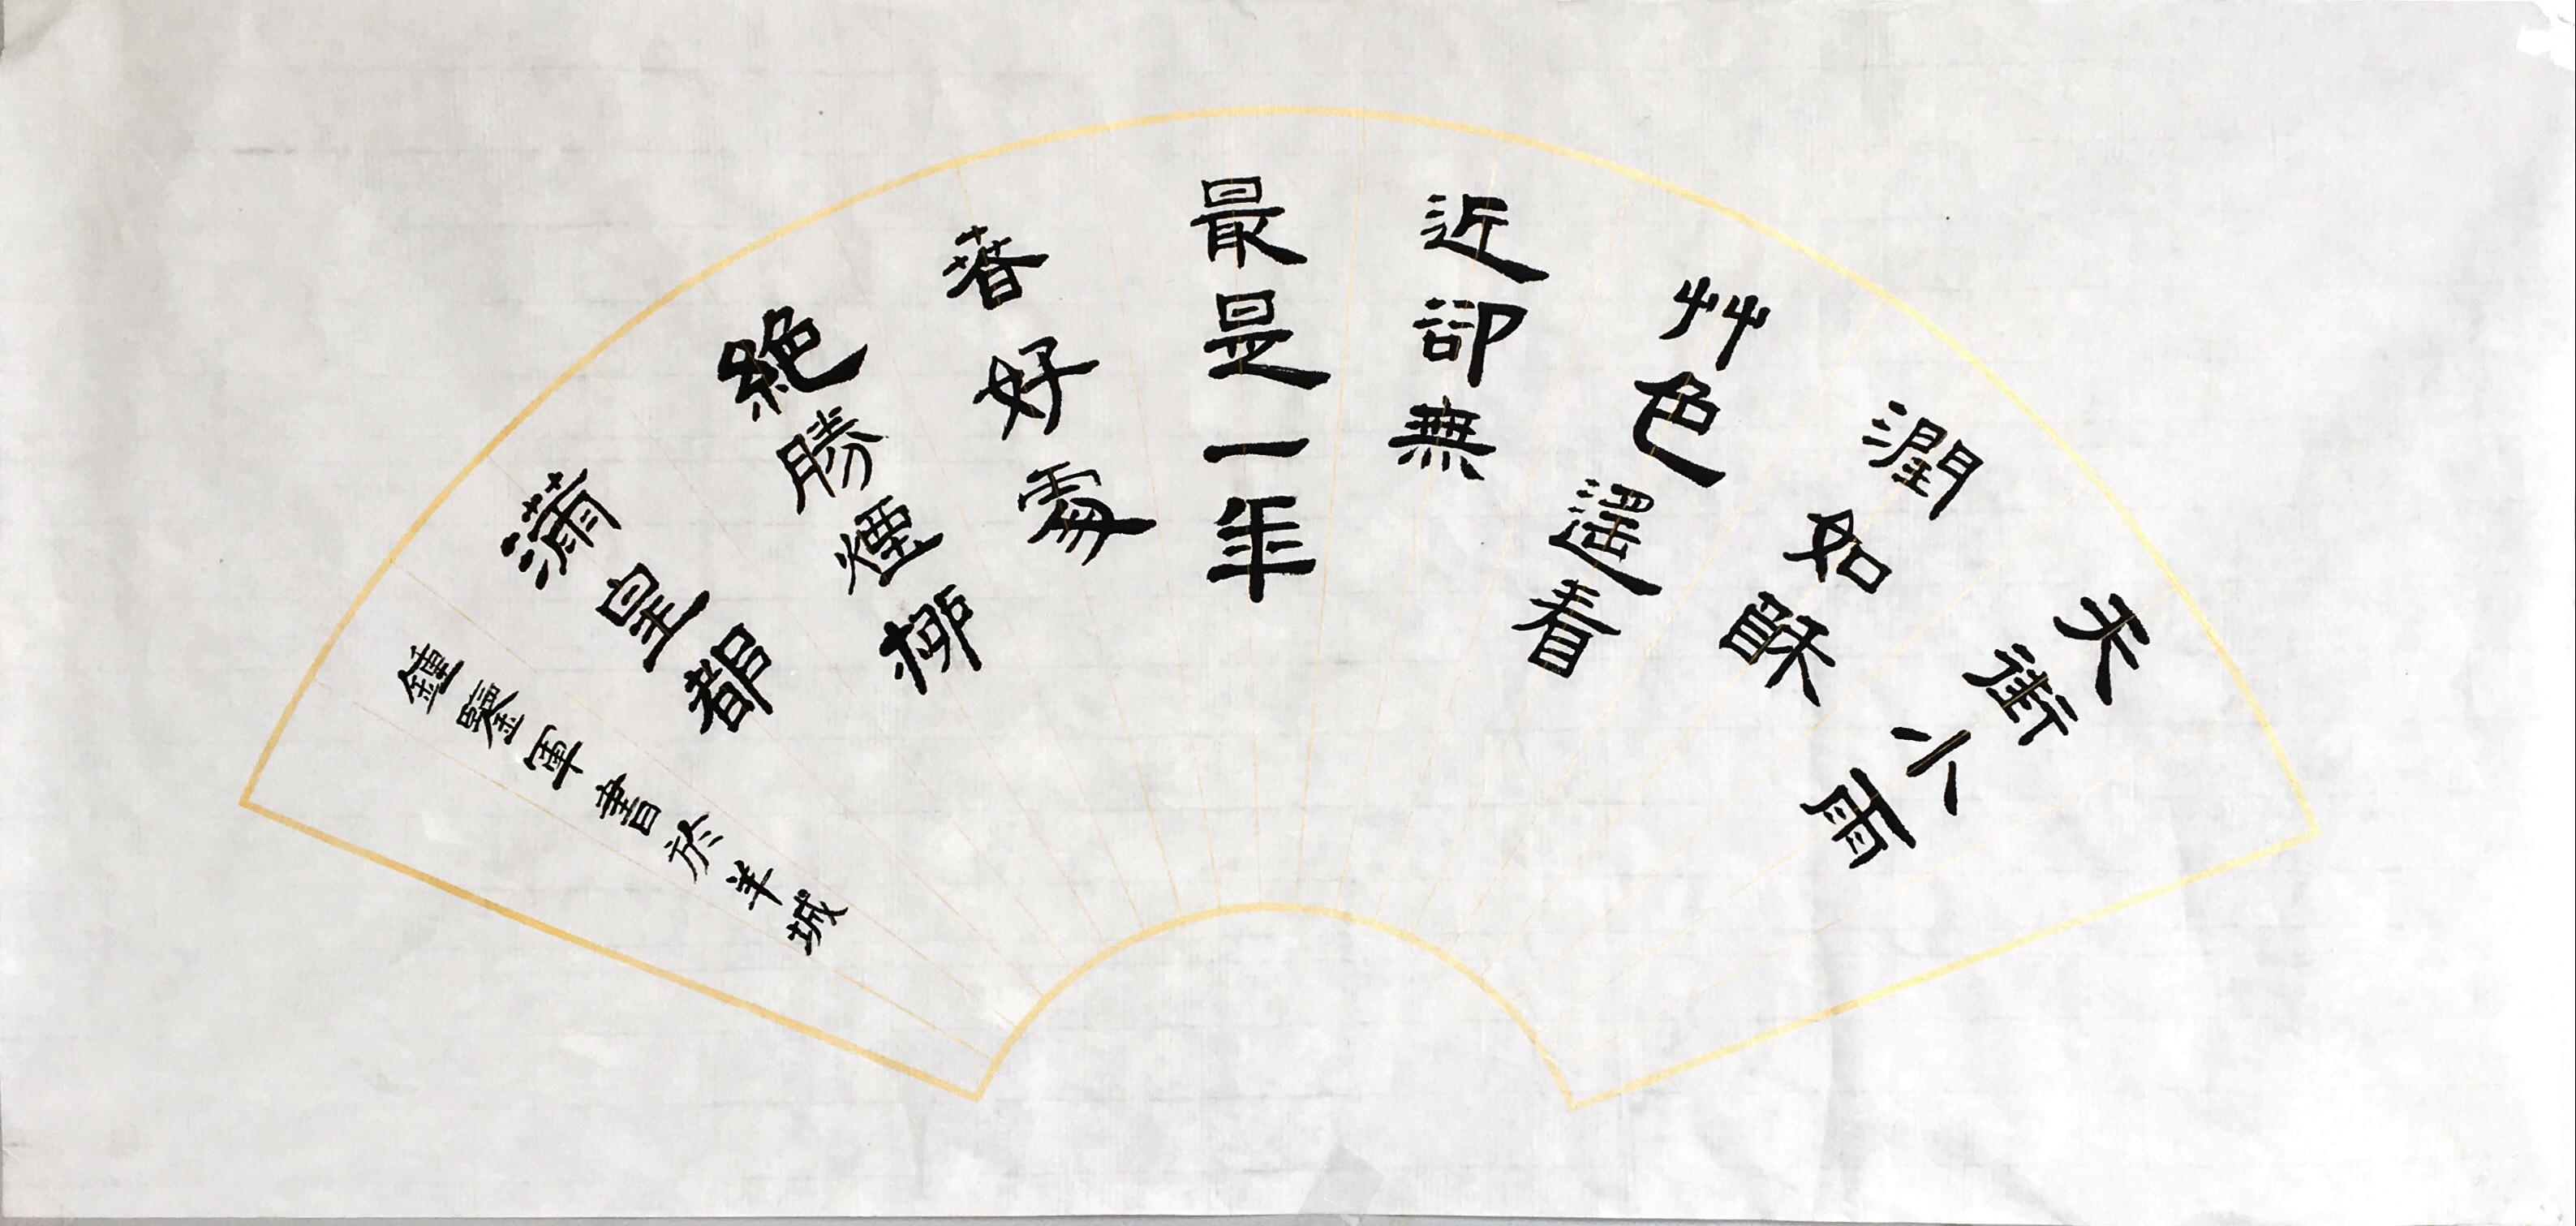 天街小雨
潤如酥
艸色遥看
近卻無
最是一年
春好處
絕勝煙柳
滿皇都
鍾鑒軍書於羊城